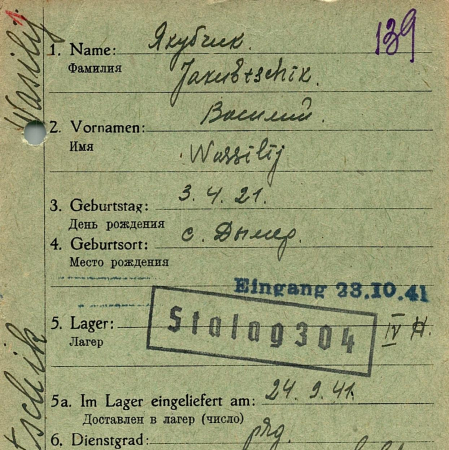 139
1. Name: Якубчик.
Фамилия
Jakubtschik.
Василий.
2. Vornamen:
Имя
Wassilij
3. Geburtstag: 3. 4. 21.
День рождения
4. Geburtsort: с. Дымер.
Место рождения
Eingang 23.10.41
5. Lager: Stalag 304 IV H.
Лагер
5a. Im Lager eingeliefert am: 24. 9. 41.
Доставлен в лагер (число)
6. Dienstgrad:
Wasilij
tschik